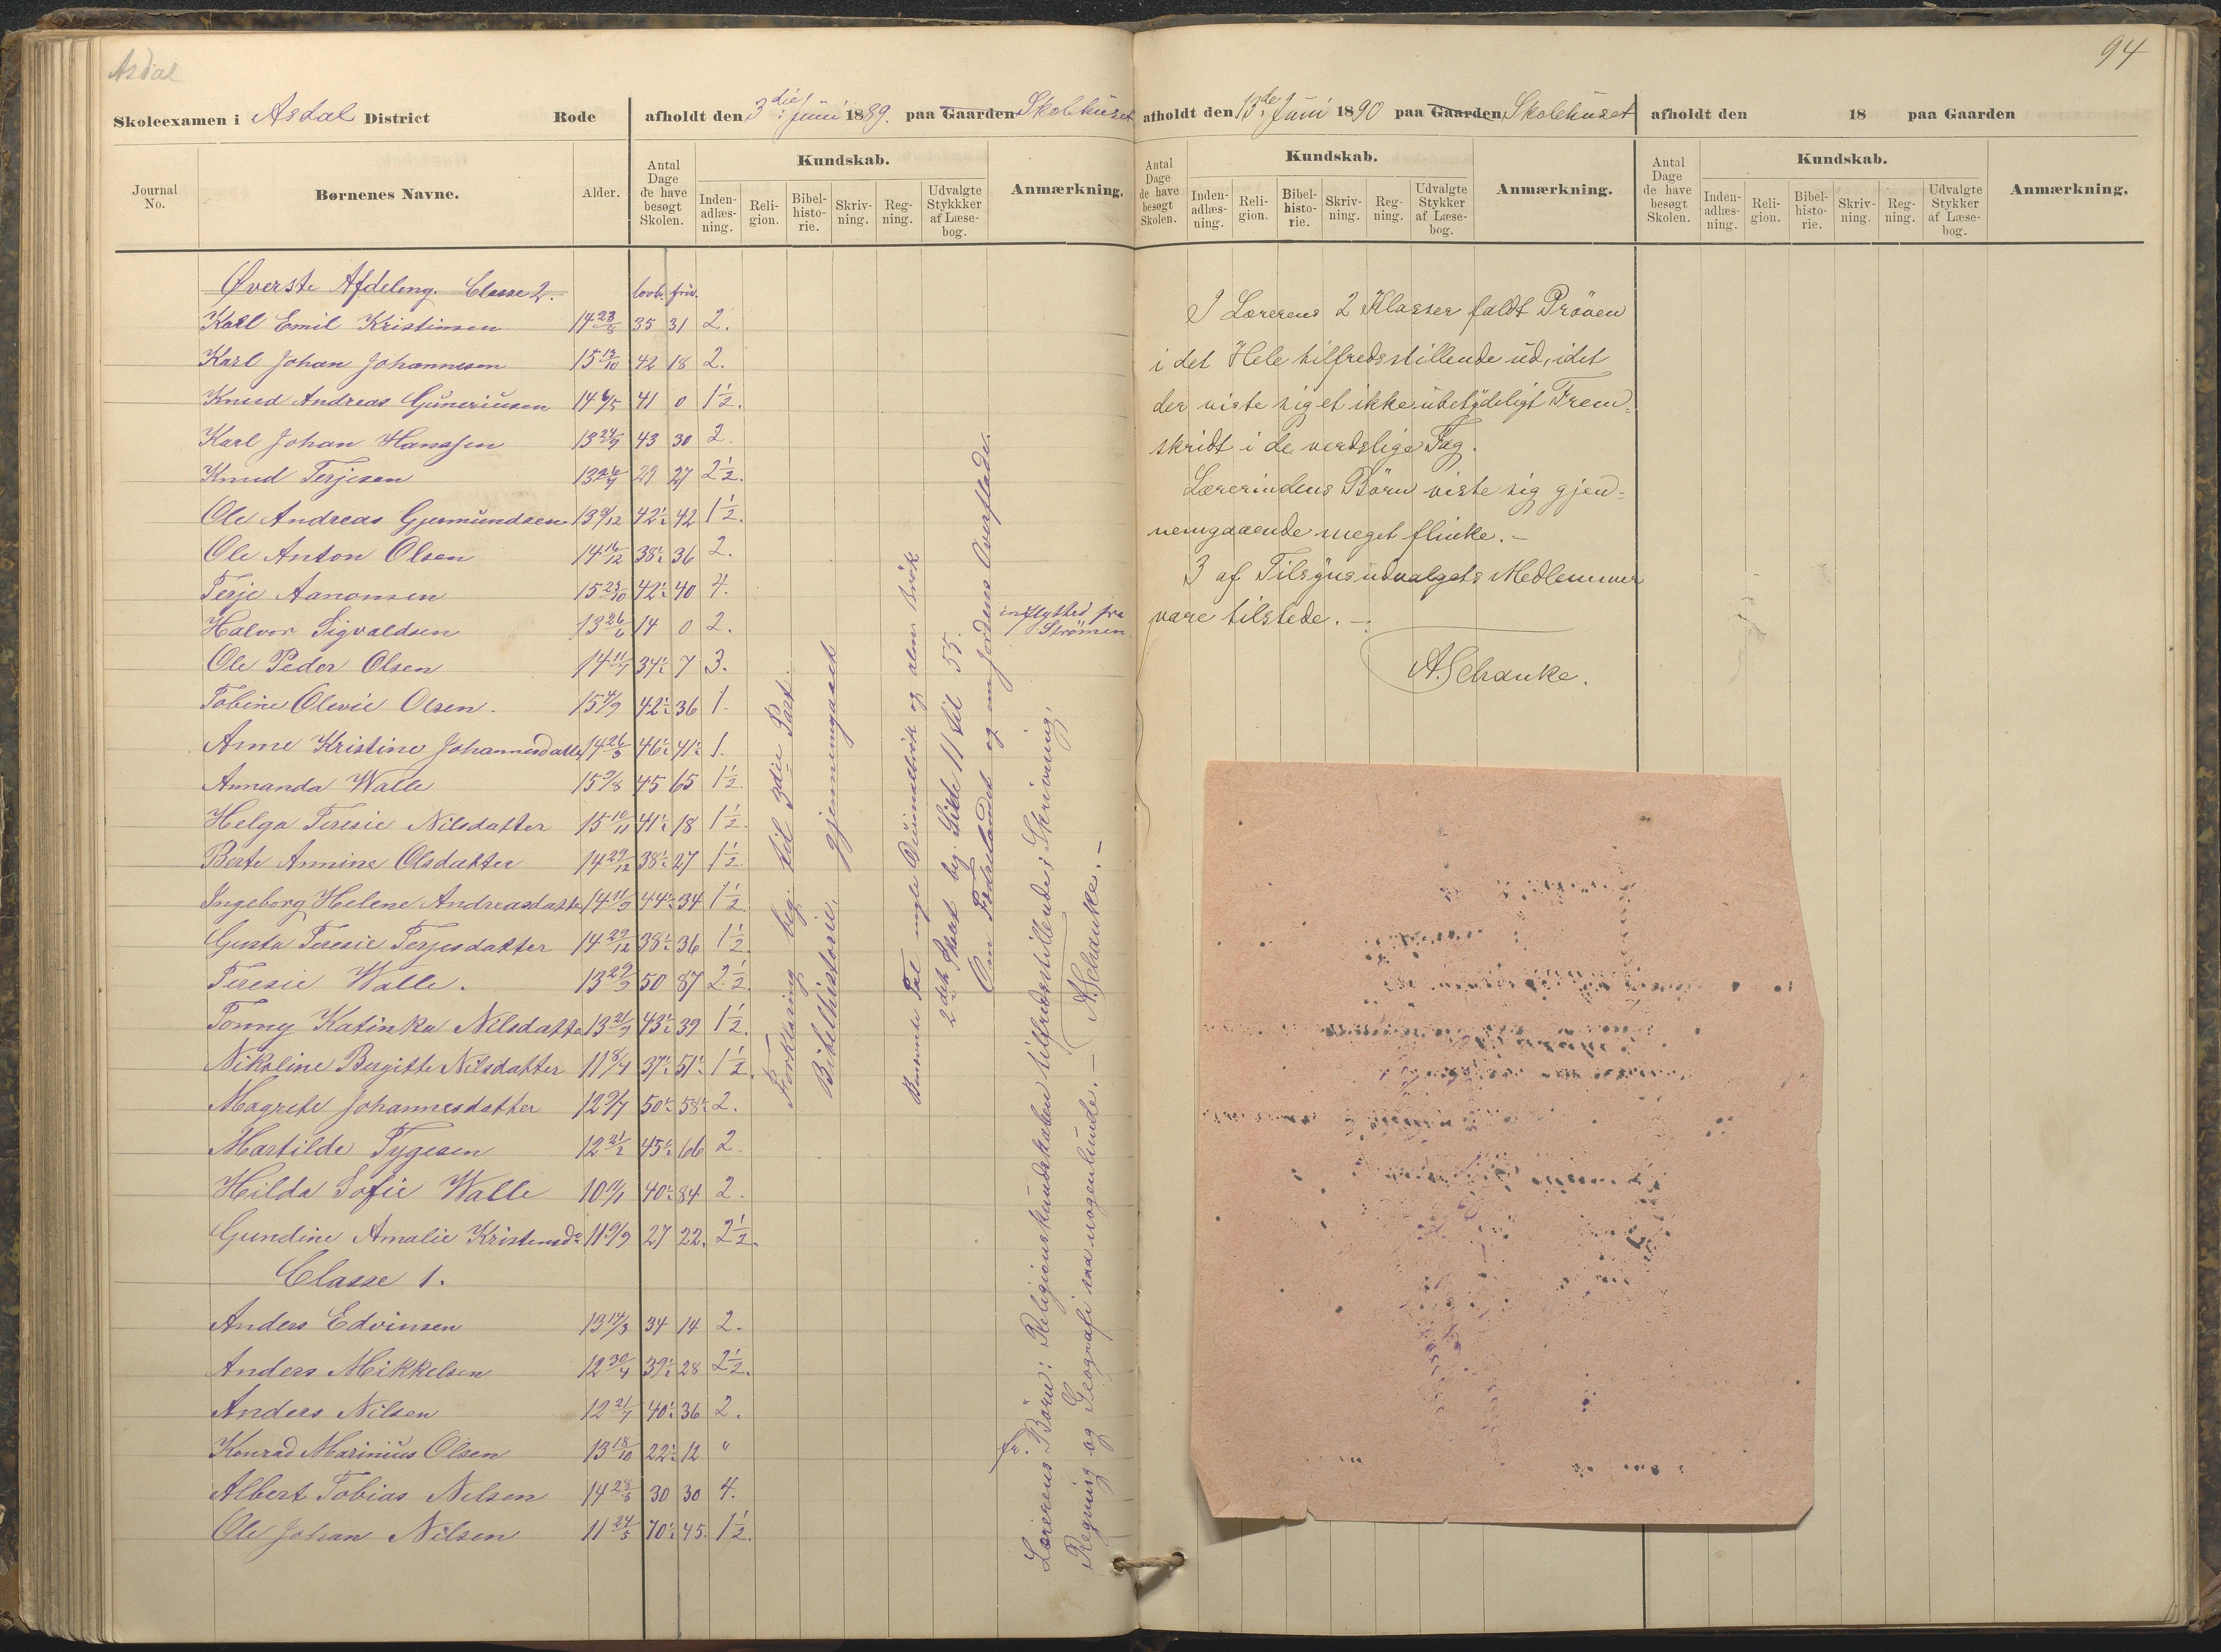 Asdal
94
Skoleexamen i Asdal District Rode afholdt den 3die Juni 1889. paa Gaarden Skolehuset
afholdt den 13de Juni 1890 paa Gaarden Skolehuset afholdt den 18 paa Gaarden
Journal No. Børnenes Navne. Alder. Antal Dage de have besøgt Skolen. Kundskab. Inden-adlæs-ning. Reli-gion. Bibel-histo-rie. Skriv-ning. Reg-ning. Udvalgte Stykkker af Læse-bog. Anmærkning.
Antal Dage de have besøgt Skolen. Kundskab. Inden-adlæs-ning. Reli-gion. Bibel-histo-rie. Skriv-ning. Reg-ning. Udvalgte Stykker af Læse-bog. Anmærkning.
Antal Dage de have besøgt Skolen. Kundskab. Inden-adlæs-ning. Reli-gion. Bibel-histo-rie. Skriv-ning. Reg-ning. Udvalgte Stykker af Læse-bog. Anmærkning.
Øverste Afdeling. Classe 2. lovb. friv.
Karl Emil Kristinsen 14 23/8 35 31 2.
Karl Johan Johannesen 15 12/10 42 18 2.
Knud Andreas Guneriusen 14 6/5 41 0 1½.
Karl Johan Hanssen 13 24/9 43 30 2.
Knud Terjesen 13 26/9 29 27 2½.
Ole Andreas Gjermundsen 13 9/12 42½ 42 1½.
Ole Anton Olsen 14 16/12 38½ 36 2.
Terje Aanonsen 15 23/10 42½ 40 4.
Halvor Sigvaldsen 13 26/6 14 0 2. indflyttet fra Strømen
Ole Peder Olsen 14 11/7 34½ 7 3.
Tobine Olevie Olsen. 15 4/9 42½ 36 1.
Anne Kristine Johannesdatter 14 26/3 46½ 41½ 1.
Amanda Walle 15 9/8 45 65 1½.
Helga Teresie Nilsdatter 15 10/11 41½ 18 1½.
Berte Annine Olsdatter 14 29/12 38½ 27 1½.
Ingeborg Helene Andreasdatter 14 11/9 44½ 34 1½.
Gusta Teresie Terjesdatter 14 29/12 38½ 36 1½.
Teresie Walle. 13 29/9 50 87 2½.
Tonny Katinka Nilsdatter 13 21/9 43½ 39 1½.
Nikoline Bergitte Nilsdatter 11 8/4 37½ 51½ 1½.
Magrete Johannesdatter 12 9/7 50½ 58½ 2.
Martilde Tygesen 12 21/2 45½ 66 2.
Hilda Sofie Walle 10 11/1 40½ 84 2.
Gundine Amalie Kristensd. 11 9/9 27 22. 2½.
Classe 1.
Anders Edvinsen 13 14/3 34 14 2.
Anders Mikkelsen 12 30/4 39½ 28 2½.
Anders Nilsen 12 21/7 40½ 36 2.
Konrad Marinius Olsen 13 18/10 22½ 12 "
Albert Tobias Nilsen 14 28/8 30 30 4.
Ole Johan Nilsen 11 24/5 70½ 45. 1½.
Forklaring beg. til 3die Part.
Bibelhistorie, gjennemgaaet
Benævnte Tal nogle Decimalbrøk og alm. Brøk
2det Skoet beg. Side 11 til 55.
Om Fædrelandet og om Jordens Overflade.
Lærerens Børn: Religionskundskaben tilfredsstillende; Skrivning,
Regning og Geografi saa nogenlunde. – A. Schanke. –
I Lærerens 2 Klasser faldt Prøven
i det Hele tilfredsstillende ud, idet
der viste sig et ikke ubetydeligt Frem-
skridt i de verdslige Fag.
Lærerindens Børn viste sig gjen-
nemgaaende meget flinke. –
3 af Tilsynsudvalgets Medlemmer
vare tilstede. –
A. Schanke.